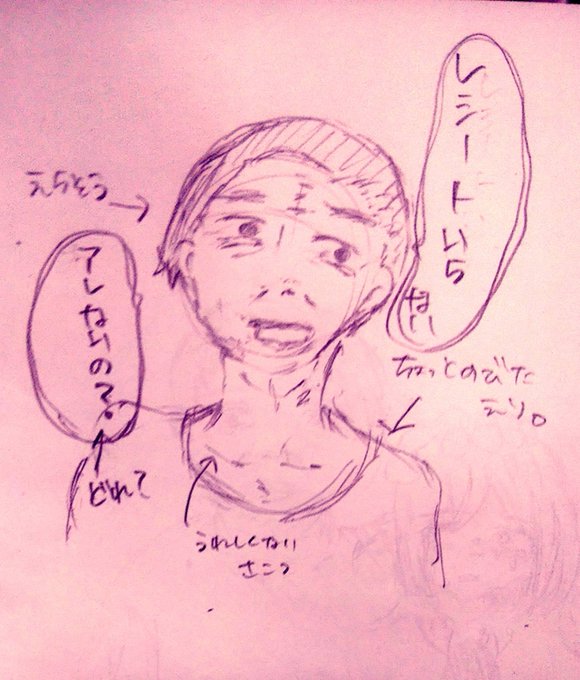 レシートいら
ない
えらそう
アレないの?
どれ?
ちょっとのびた
えり。
うれしくない
さこつ